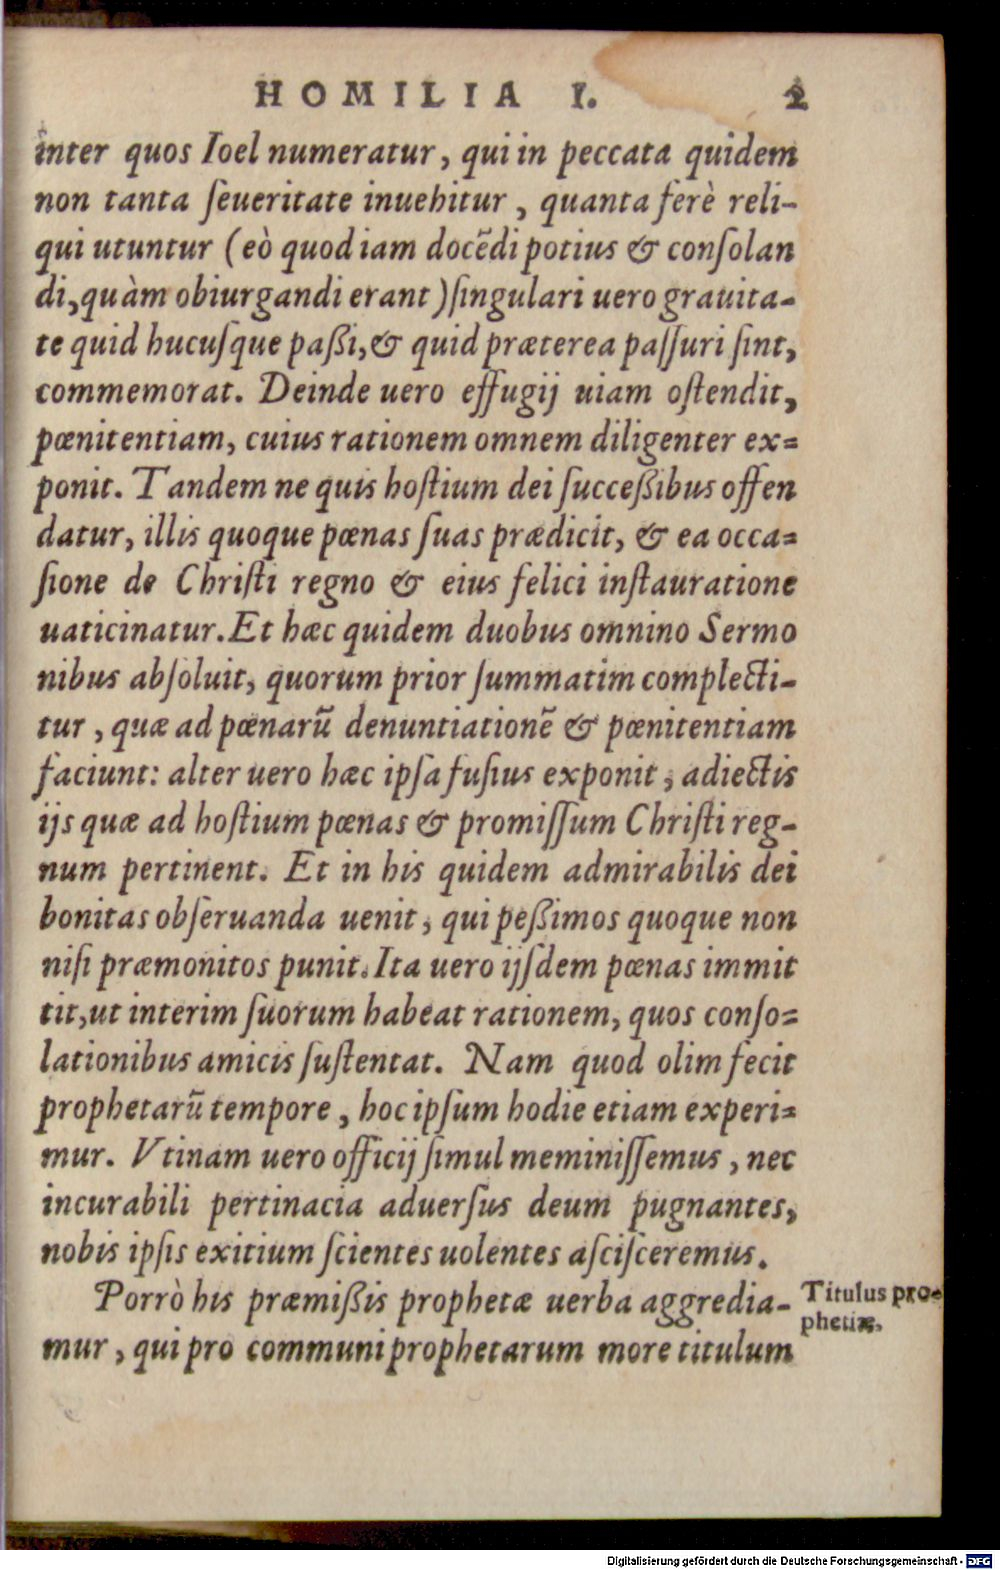 HOMILIA I. 2
inter quos Ioel numeratur, qui in peccata quidem
non tanta ſeueritate inuehitur, quanta ferè reli-
qui utuntur (eò quod iam docẽdi potius & conſolan
di, quàm obiurgandi erant) ſingulari uero grauita-
te quid hucuſque paßi, & quid præterea paſſuri ſint,
commemorat. Deinde uero effugij uiam oſtendit,
pœnitentiam, cuius rationem omnem diligenter ex-
ponit. Tandem ne quis hoſtium dei ſucceßibus offen
datur, illis quoque pœnas ſuas prædicit, & ea occa-
ſione de Chriſti regno & eius felici inſtauratione
uaticinatur. Et hæc quidem duobus omnino Sermo
nibus abſoluit, quorum prior ſummatim complecti-
tur, quæ ad pœnarũ denuntiationẽ & pœnitentiam
faciunt: alter uero hæc ipſa fuſius exponit, adiectis
ijs quæ ad hoſtium pœnas & promiſſum Chriſti reg-
num pertinent. Et in his quidem admirabilis dei
bonitas obſeruanda uenit, qui peßimos quoque non
niſi præmonitos punit. Ita uero ijſdem pœnas immit
tit, ut interim ſuorum habeat rationem, quos conſo-
lationibus amicis ſuſtentat. Nam quod olim fecit
prophetarũ tempore, hoc ipſum hodie etiam experi-
mur. Vtinam uero officij ſimul meminiſſemus, nec
incurabili pertinacia aduerſus deum pugnantes,
nobis ipſis exitium ſcientes uolentes aſciſceremus.
Porrò his præmißis prophetæ uerba aggredia-
mur, qui pro communi prophetarum more titulum
Titulus pro-
phetiæ.
Digitalisierung gefördert durch die Deutsche Forschungsgemeinschaft - DFG